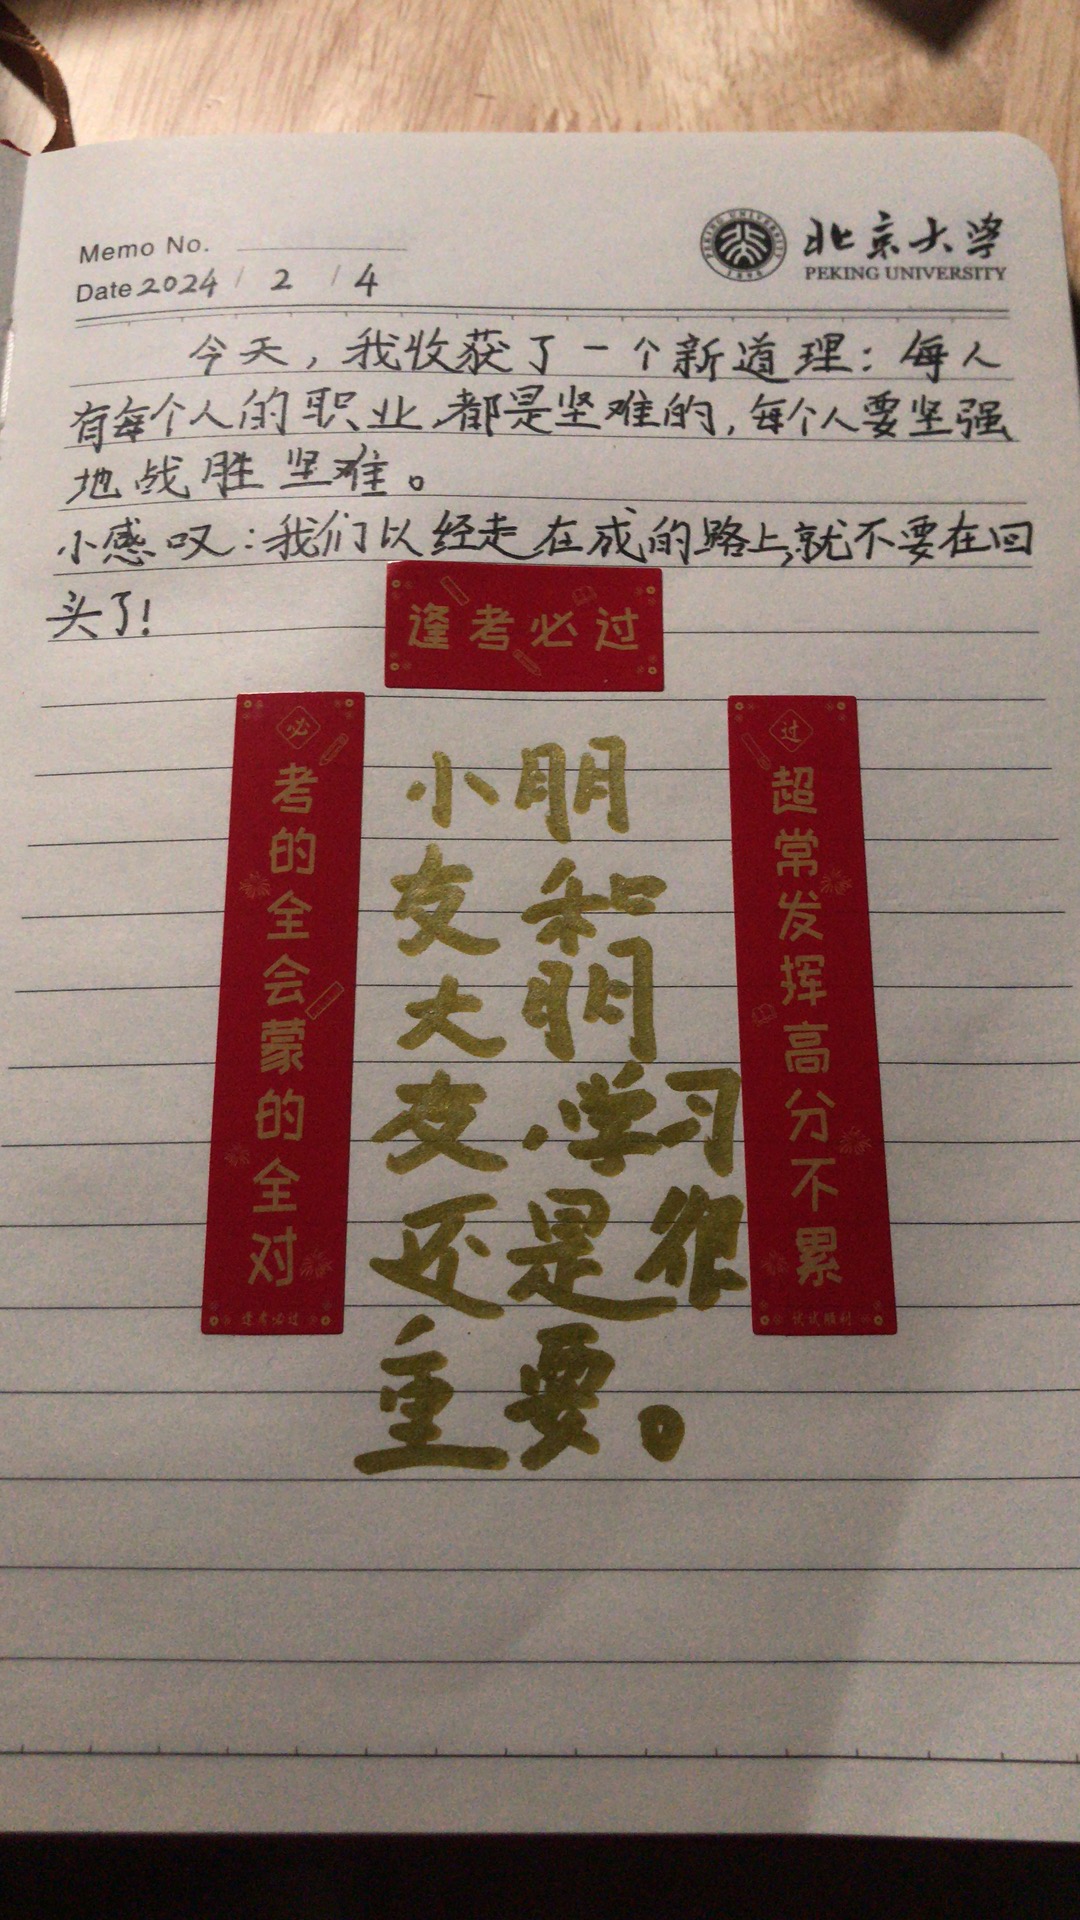 Memo No.
Date 2024 / 2 / 4
北京大学
PEKING UNIVERSITY
PEKING UNIVERSITY
1898
今天，我收获了一个新道理：每人
有每个人的职业，都是坚难的，每个人要坚强
地战胜坚难。
小感叹：我们以经走在成的路上，就不要在回
头了！
逢考必过
必
考的全会蒙的全对
逢考必过
小朋
友和
大朋
友，学习
还是很
重要。
过
超常发挥高分不累
试试顺利